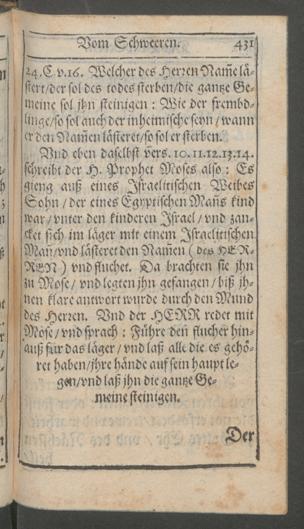 Vom Schweeren. 431
24. C. v. 16. Welcher des Herren Nam̃e lä-
stert / der sol des todes sterben / die gantze Ge-
meine sol jhn steinigen : Wie der frembd-
linge / so sol auch der inheimische seyn / wann
er den Nam̃en lästeret / so sol er sterben.
Vnd eben daselbst vers. 10. 11. 12. 13. 14.
schreibt der H. Prophet Moses also : Es
gieng auß eines Israelitischen Weibes
Sohn / der eines Egyptischen Mañs kind
war / vnter den kinderen Israel / vnd zan-
cket sich im läger mit einem Israelitischen
Mañ / vnd lästeret den Nam̃en ( des HER-
REN ) vnd fluchet. Da brachten sie jhn
zu Mose / vnd legten jhn gefangen / biß jh-
nen klare antwort wurde durch den Mund
des Herzen. Vnd der HERR redet mit
Mose / vnd sprach : Führe den flucher hin-
auß für das läger / vnd laß alle die es gehö-
ret haben / jhre hände auf sein haupt le-
gen / vnd laß jhn die gantze Ge-
meine steinigen.
Der